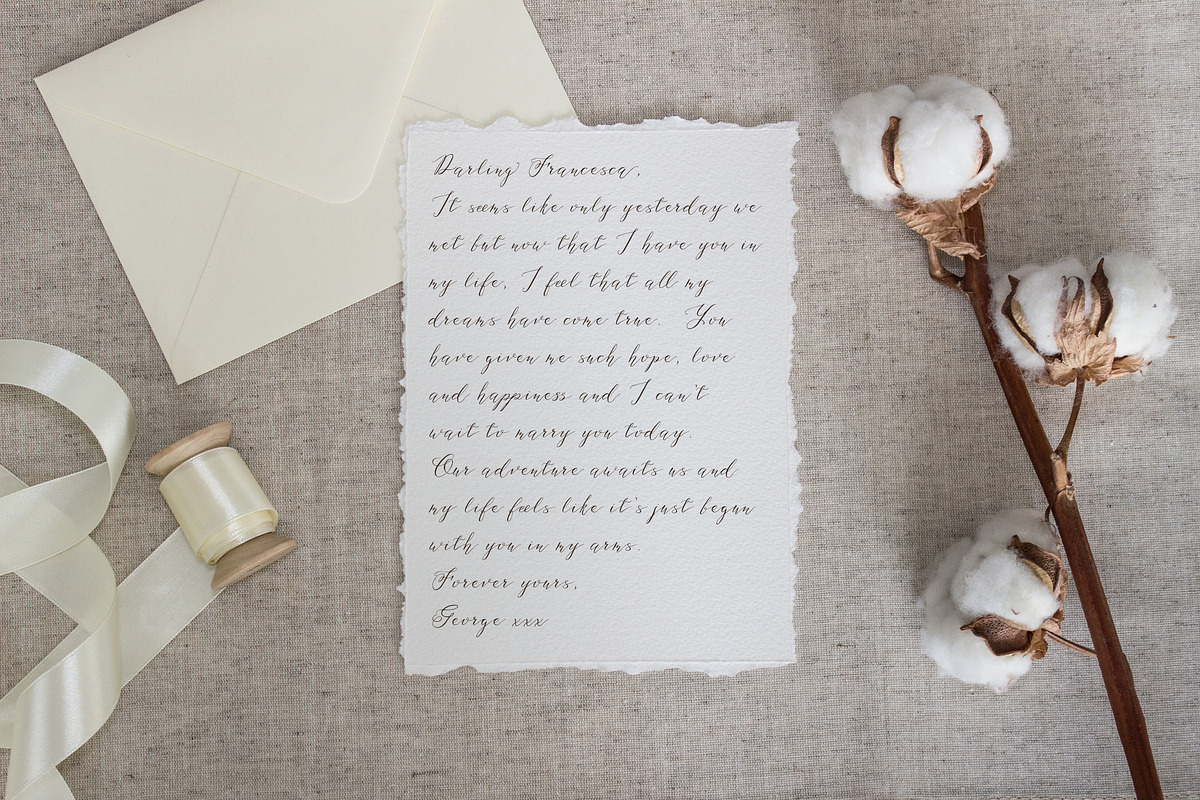 Darling Francesca,
It seems like only yesterday we
met but now that I have you in
my life, I feel that all my
dreams have come true. You
have given me such hope, love
and happiness and I can't
wait to marry you today.
Our adventure awaits us and
my life feels like it's just begun
with you in my arms.
Forever yours,
George xxx